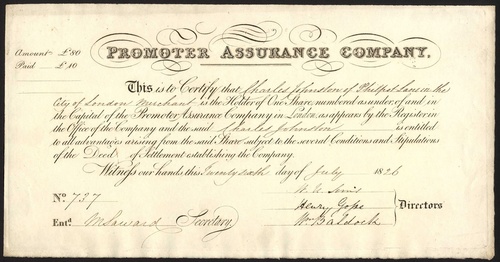 Amount £80
Paid £10
PROMOTER ASSURANCE COMPANY.
This is to Certify that Charles Johnston of Philpot Lane in the
City of London Merchant is the Holder of One Share, numbered as under of and in
the Capital of the Promoter Assurance Company in London, as appears by the Register in
the Office of the Company and the said Charles Johnston is entitled
to all advantages arising from the said Share subject to the several Conditions and Stipulations
of the Deed of Settlement establishing the Company.
Witness our hands this Twenty sixth day of July 1826
Henry
Wm Baldock
Directors
No. 737
Entd. Saward Secretary.